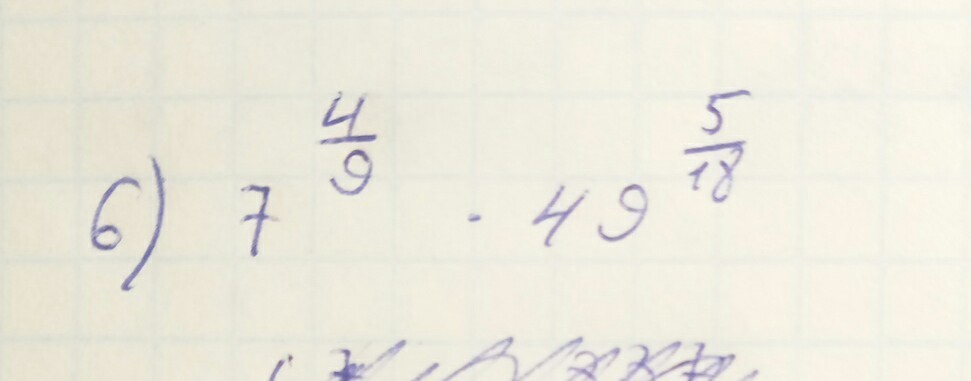 6) 7^{4/9} · 49^{5/18}